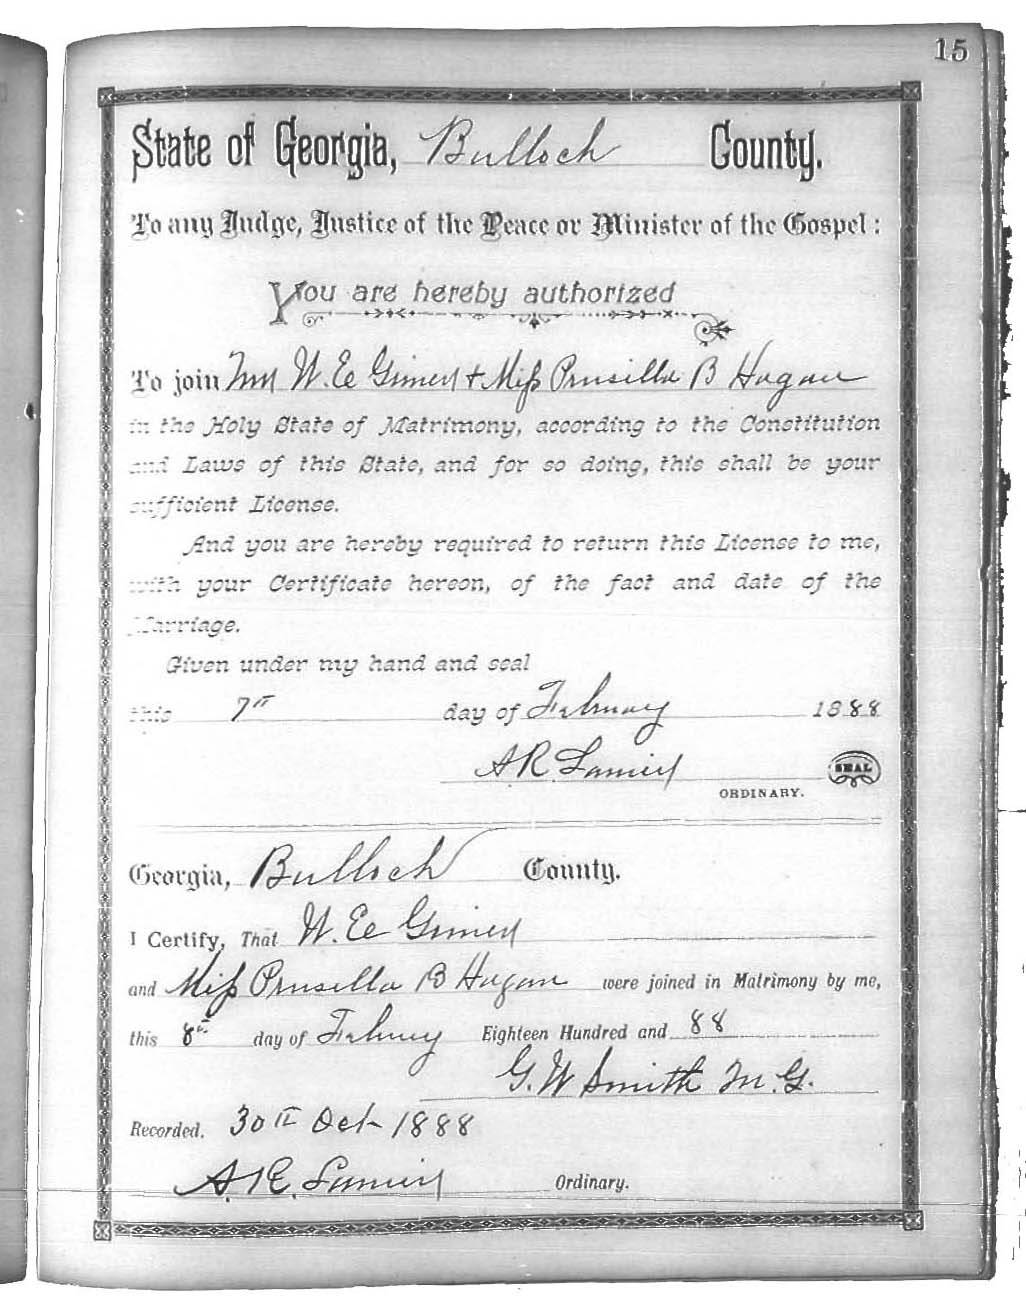 15
State of Georgia, Bulloch County.
To any Judge, Justice of the Peace or Minister of the Gospel:
You are hereby authorized
To join W. E. & Miss Prusilla B Hagan
in the Holy State of Matrimony, according to the Constitution
and Laws of this State, and for so doing, this shall be your
sufficient License.
And you are hereby required to return this License to me,
with your Certificate hereon, of the fact and date of the
Marriage.
Given under my hand and seal
this 7th day of February 1888
A R Lanier SEAL
ORDINARY.
Georgia, Bulloch County.
I Certify, That W. E.
and Miss Prusilla B Hagan were joined in Matrimony by me,
this 8th day of February Eighteen Hundred and 88
G. W Smith M. G.
Recorded. 30th Oct 1888
A. R. Lanier Ordinary.